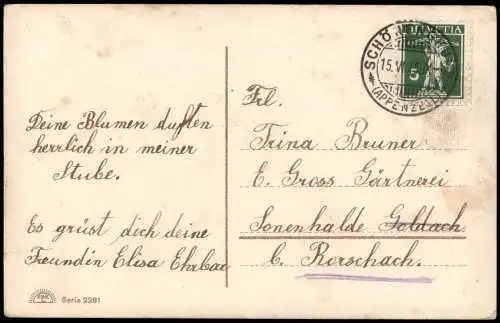 HELVETIA
5
SCHÖN
15. VI.
(APPENZELL
Frl.
Deine Blumen duften
herrlich in meiner
Stube.
Es grüst dich deine
Freundin Elisa Ehrbar
Trina Bruner
E. Gross Gärtnerei
Sonenhalde Goldach
b. Rorschach.
Serie 2281